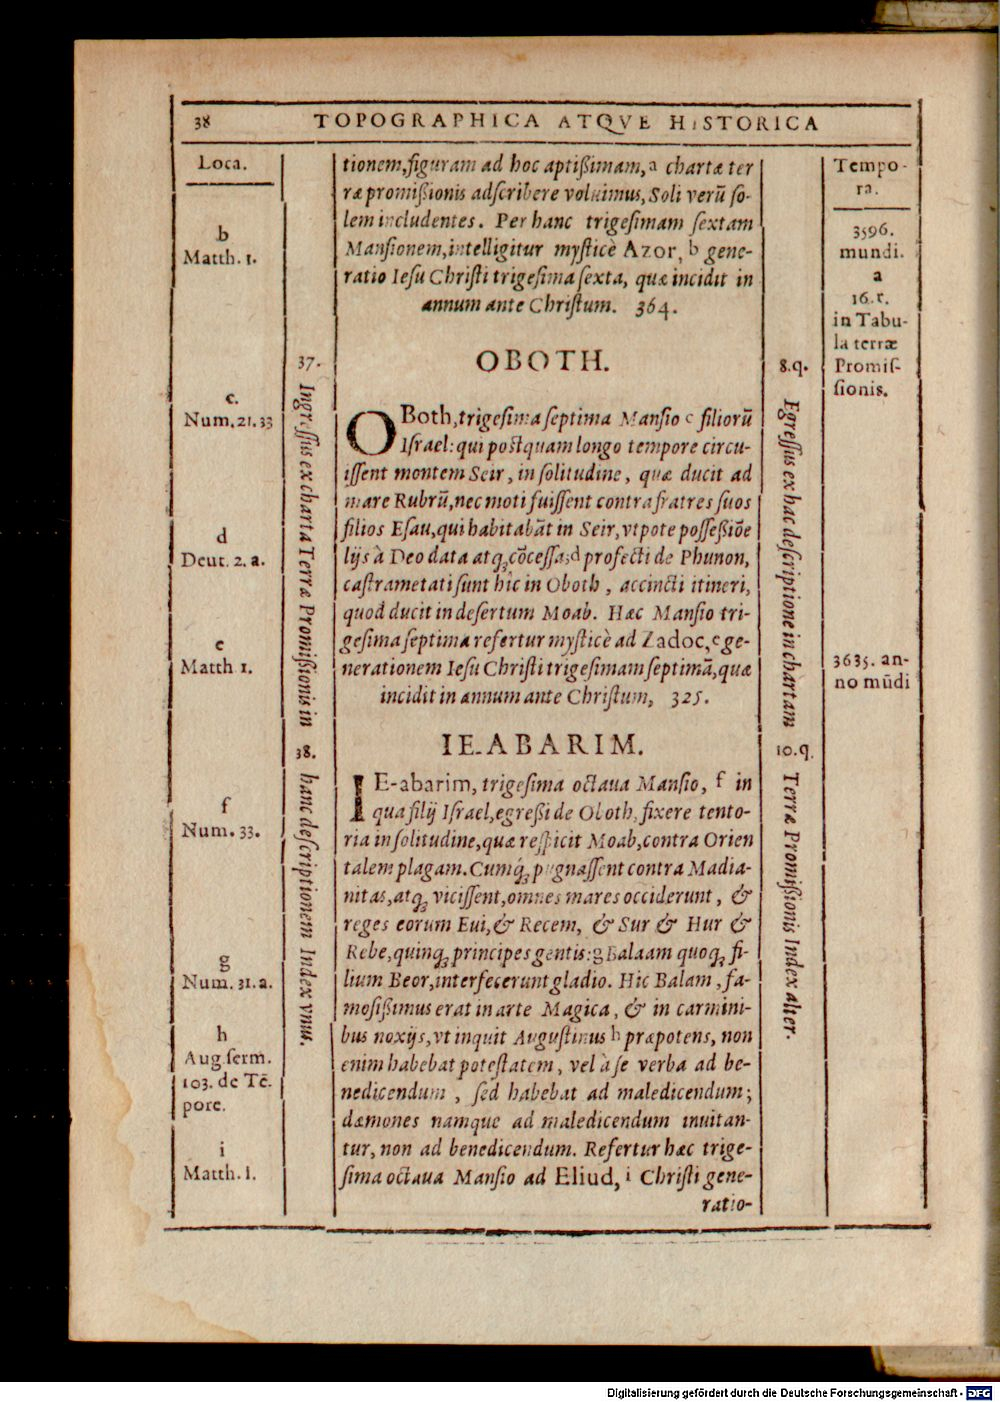 38 TOPOGRAPHICA ATQVE HISTORICA
Loca.
b
Matth. 1.
c.
Num. 21. 33
d
Deut. 2. a.
e
Matth 1.
f
Num. 33.
g
Num. 31. a.
h
Aug ſerm.
103. de Tē.
pore.
i
Matth. 1.
37.
Ingreſſus ex charta Terræ Promiſſionis in
38.
hanc deſcriptionem Index vnus.
tionem, figuram ad hoc aptißimam, a chartæ ter
ræ promißionis adſcribere voluimus, Soli verū ſo-
lem includentes. Per hanc trigeſimam ſextam
Manſionem, intelligitur myſticè Azor, b gene-
ratio Ieſu Chriſti trigeſima ſexta, quæ incidit in
annum ante Chriſtum. 364.
OBOTH.
OBoth, trigeſima ſeptima Manſio c filiorū
Iſrael: qui poſtquam longo tempore circu-
iſſent montem Seir, in ſolitudine, quæ ducit ad
mare Rubrū, nec moti fuiſſent contra fratres ſuos
filios Eſau, qui habitabāt in Seir, vtpote poſſeßiōe
ijs à Deo data atqꝫ cōceſſa; d profecti de Phunon,
caſtrametati ſunt hîc in Oboth, accincti itineri,
quod ducit in deſertum Moab. Hæc Manſio tri-
geſima ſeptima refertur myſticè ad Zadoc, e ge-
nerationem Ieſu Chriſti trigeſimam ſeptimā, quæ
incidit in annum ante Chriſtum, 325.
IE-ABARIM.
IE-abarim, trigeſima octaua Manſio, f in
qua filij Iſrael, egreßi de Oboth, fixere tento-
ria in ſolitudine, quæ reſpicit Moab, contra Orien
talem plagam. Cumqꝫ pugnaſſent contra Madia-
nitas, atqꝫ viciſſent, omnes mares occiderunt, &
reges eorum Eui, & Recem, & Sur & Hur &
Rebe, quinqꝫ principes gentis: g Balaam quoqꝫ fi-
lium Beor, interfecerunt gladio. Hic Balam, fa-
moſißimus erat in arte Magica, & in carmini-
bus noxijs, vt inquit Auguſtinus h præpotens, non
enim habebat poteſtatem, vel à ſe verba ad be-
nedicendum, ſed habebat ad maledicendum;
dæmones namque ad maledicendum inuitan-
tur, non ad benedicendum. Refertur hæc trige-
ſima octaua Manſio ad Eliud, i Chriſti gene-
ratio-
8.q.
Egreſſus ex hac deſcriptione in chartam
10.q.
Terræ Promiſſionis Index alter.
Tempo-
ra.
3596.
mundi.
a
16. r.
in Tabu-
la terræ
Promiſ-
ſionis.
3635. an-
no mūdi
Digitalisierung gefördert durch die Deutsche Forschungsgemeinschaft - DFG